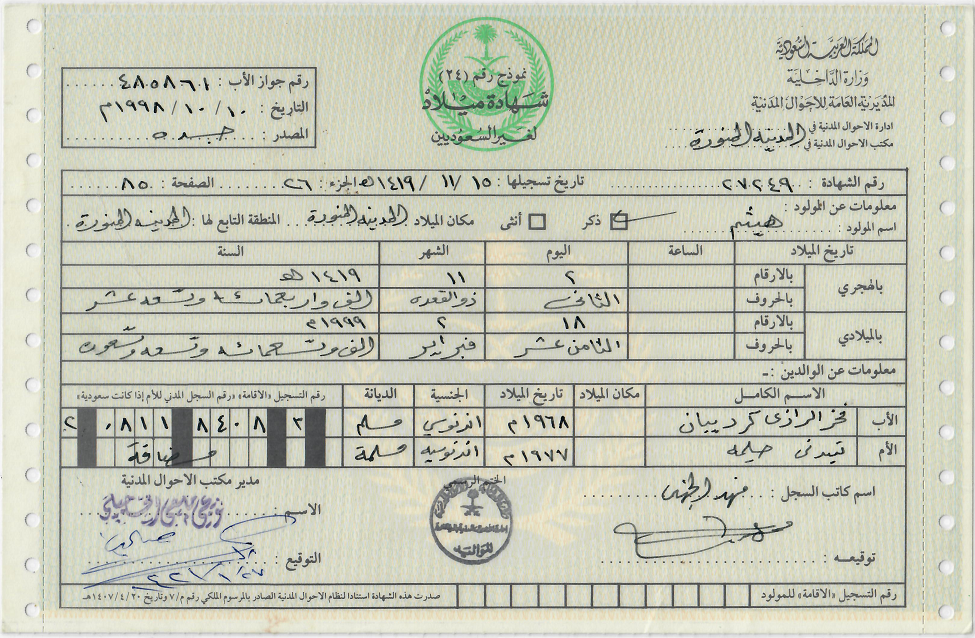 المملكة العربية السعودية
وزارة الداخلية
المديرية العامة للأحوال المدنية
ادارة الاحوال المدنية في
مكتب الاحوال المدنية في المدينة المنورة
نموذج رقم (٢٤)
شهادة ميلاد
لغير السعوديين
رقم جواز الأب : ٤٨٥٨٦١
التاريخ : ١٠/١٠/١٩٩٨م
المصدر : جده
رقم الشهادة : ٢٧٢٤٩ تاريخ تسجيلها : ١٥/١١/١٤١٩هـ الجزء : ٢٦ الصفحة : ٨٥
معلومات عن المولود :
اسم المولود : هيثم ذكر أنثى مكان الميلاد المدينه المنورة المنطقة التابع لها : المدينه المنورة
تاريخ الميلاد الساعة اليوم الشهر السنة
بالهجري بالارقام ٢ ١١ ١٤١٩هـ
بالحروف الثاني ذو القعده الف واربعمائه وتسعه عشر
بالميلادي بالارقام ١٨ ٢ ١٩٩٩م
بالحروف الثامن عشر فبراير الف وتسعمائه وتسعه وتسعون
معلومات عن الوالدين :ـ
الاسم الكامل مكان الميلاد تاريخ الميلاد الجنسية الديانة رقم التسجيل «الاقامة» «رقم السجل المدني للأم إذا كانت سعودية»
الأب فخر الرازى كردييان ١٩٦٨م اندنوسي مسلم
الأم حليمه ١٩٧٧م اندنوسيه مسلمة مضافة
اسم كاتب السجل : فهد الجهني
توقيعه :
الختم الرسمي
مدير مكتب الاحوال المدنية
الاسم
التوقيع :
رقم التسجيل «الاقامة» للمولود
صدرت هذه الشهادة استنادا لنظام الاحوال المدنية الصادر بالمرسوم الملكي رقم م/٧ وتاريخ ١٤٠٧/٤/٢٠هـ